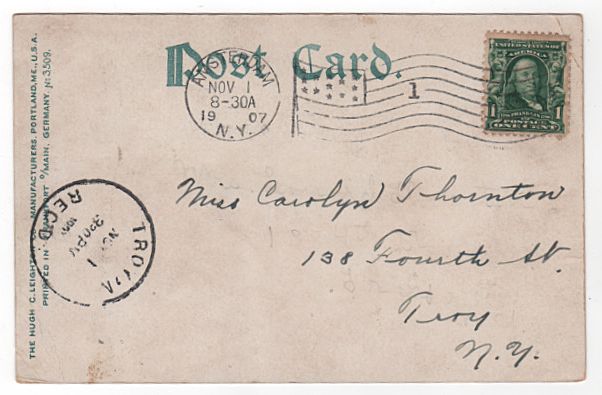 Post Card.
AMSTERDAM
NOV 1
8-30A
1907
N.Y.
1
UNITED STATES OF AMERICA
FRANKLIN
1 POSTAGE 1
ONE CENT
THE HUGH C. LEIGHTON CO., MANUFACTURERS, PORTLAND, ME., U.S.A.
PRINTED IN FRANKFORT O/MAIN, GERMANY. No 3509.
TROY
NOV
1
330PM
REC'D
Miss Carolyn Thornton
138 Fourth St.
Troy
N.Y.